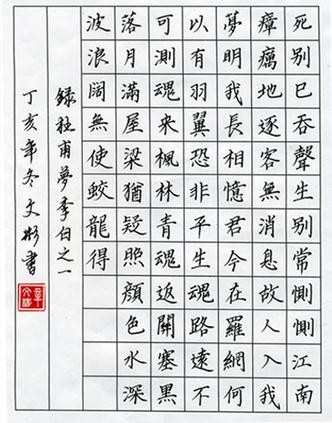 死別已吞聲生別常惻惻江南
瘴癘地逐客無消息故人入我
夢明我長相憶君今在羅網何
以有羽翼恐非平生魂路遠不
可測魂來楓林青魂返關塞黑
落月滿屋梁猶疑照顏色水深
波浪闊無使蛟龍得
錄杜甫夢李白之一
丁亥年冬文彬書